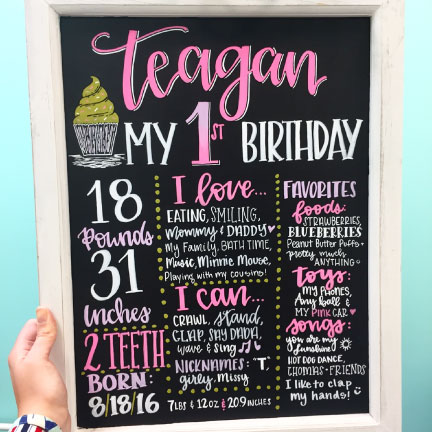 Teagan
MY 1ST BIRTHDAY
18
Pounds
31
inches
2 TEETH
BORN:
8/18/16
I love...
EATING, SMILING,
Mommy & DADDY
My Family, BATH TIME,
Music, Minnie Mouse,
Playing with my cousins!
I can...
CRAWL, Stand,
CLAP, SAY DADA,
wave & sing
NICKNAMES: "T",
girly, Missy
7 LBS & 12 OZ & 20.9 INCHES
FAVORITES
foods:
STRAWBERRIES,
BLUEBERRIES
Peanut Butter Puffs +
pretty much
ANYTHING
toys:
MY PHONES,
Any ball &
MY PINK CAR
songs:
you are my
sunshine
HOT DOG DANCE,
THOMAS + FRIENDS
I like to clap
my hands!